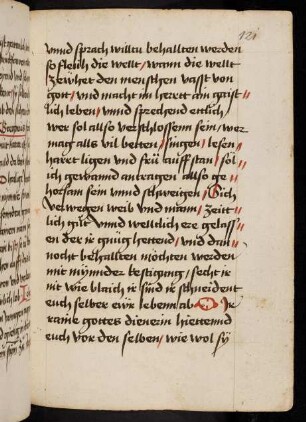 121
vnnd sprach willtu behallten werden
so fleuch die wellt / wann die wellt
zewhet den menschen vasst von
gott / vnd macht im herett ain gaist
lich leben / vnnd sprechend ettlich
wer sol allso verschlossenn sein / wer
mag alls vil betten / singen / lesen /
häret ligen vnd frü auff stan / sol
ich gewannd antragen allso ge
horsam sein vnnd schweigen / Sich
verwegen weib vnd mann / Zeitt
lich gůt vnnd welltlich ere gelass
en der ir gnüg hettend / vnd dan
nocht behallten möchten werden
mit mynnder kestigung / secht ir
mit wie blaich ir sind ir schneident
euch selber ewr leben ab Ir
raine gottes dienerin hiettennd
euch vor den selben / wie wol sÿ